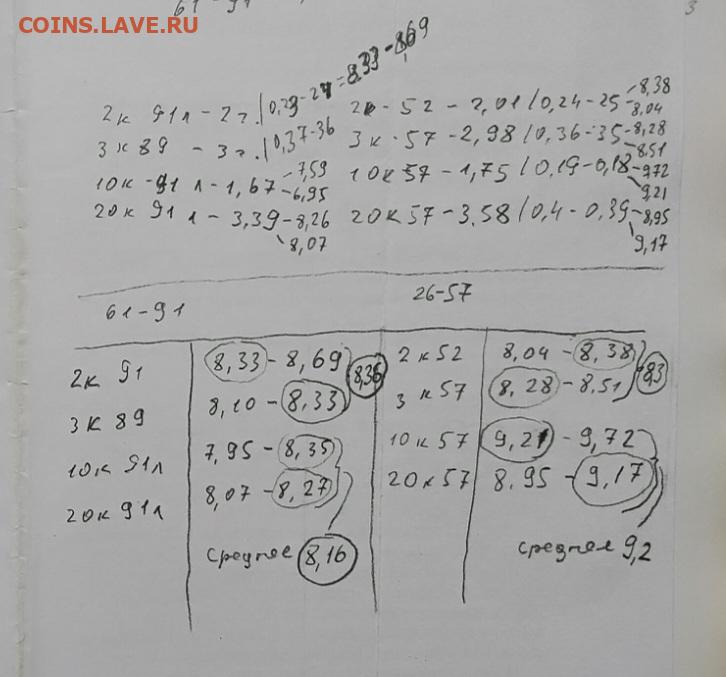 COINS.LAVE.RU
61-91
3
2к 91л - 2г. | 0,23-24 = 8,33 - 8,69
3к 89 - 3г. | 0,37-36
10к 91л - 1,67 - 7,59
6,95
20к 91л - 3,39 - 8,26
8,07
2к - 52 - 2,01 / 0,24 - 25 - 8,38
8,04
3к - 57 - 2,98 / 0,36 - 35 - 8,28
8,51
10к 57 - 1,75 / 0,19 - 0,18 - 9,72
9,21
20к 57 - 3.58 / 0,4 - 0,39 - 8,95
9,17
61-91
26-57
2к 91
8,33 - 8,69
8,36
2к52
8,04 - 8,38
8,3
3к 89
8,10 - 8,33
3 к57
8,28 - 8,51
10к 91л
7,95 - 8,35
10к57
9,21 - 9,72
20к 91л
8,07 - 8,27
20к57
8.95 - 9,17
среднее 8,16
среднее 9,2